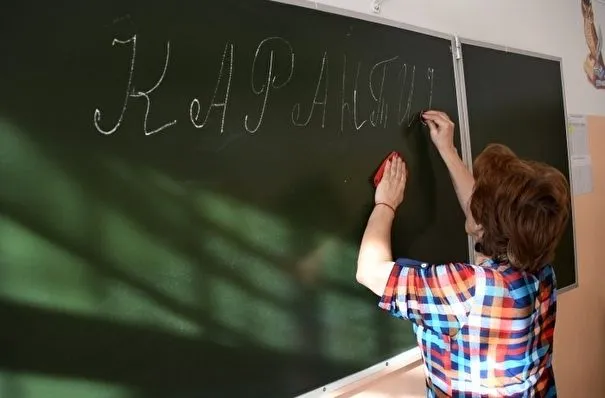 КАРАНТИН